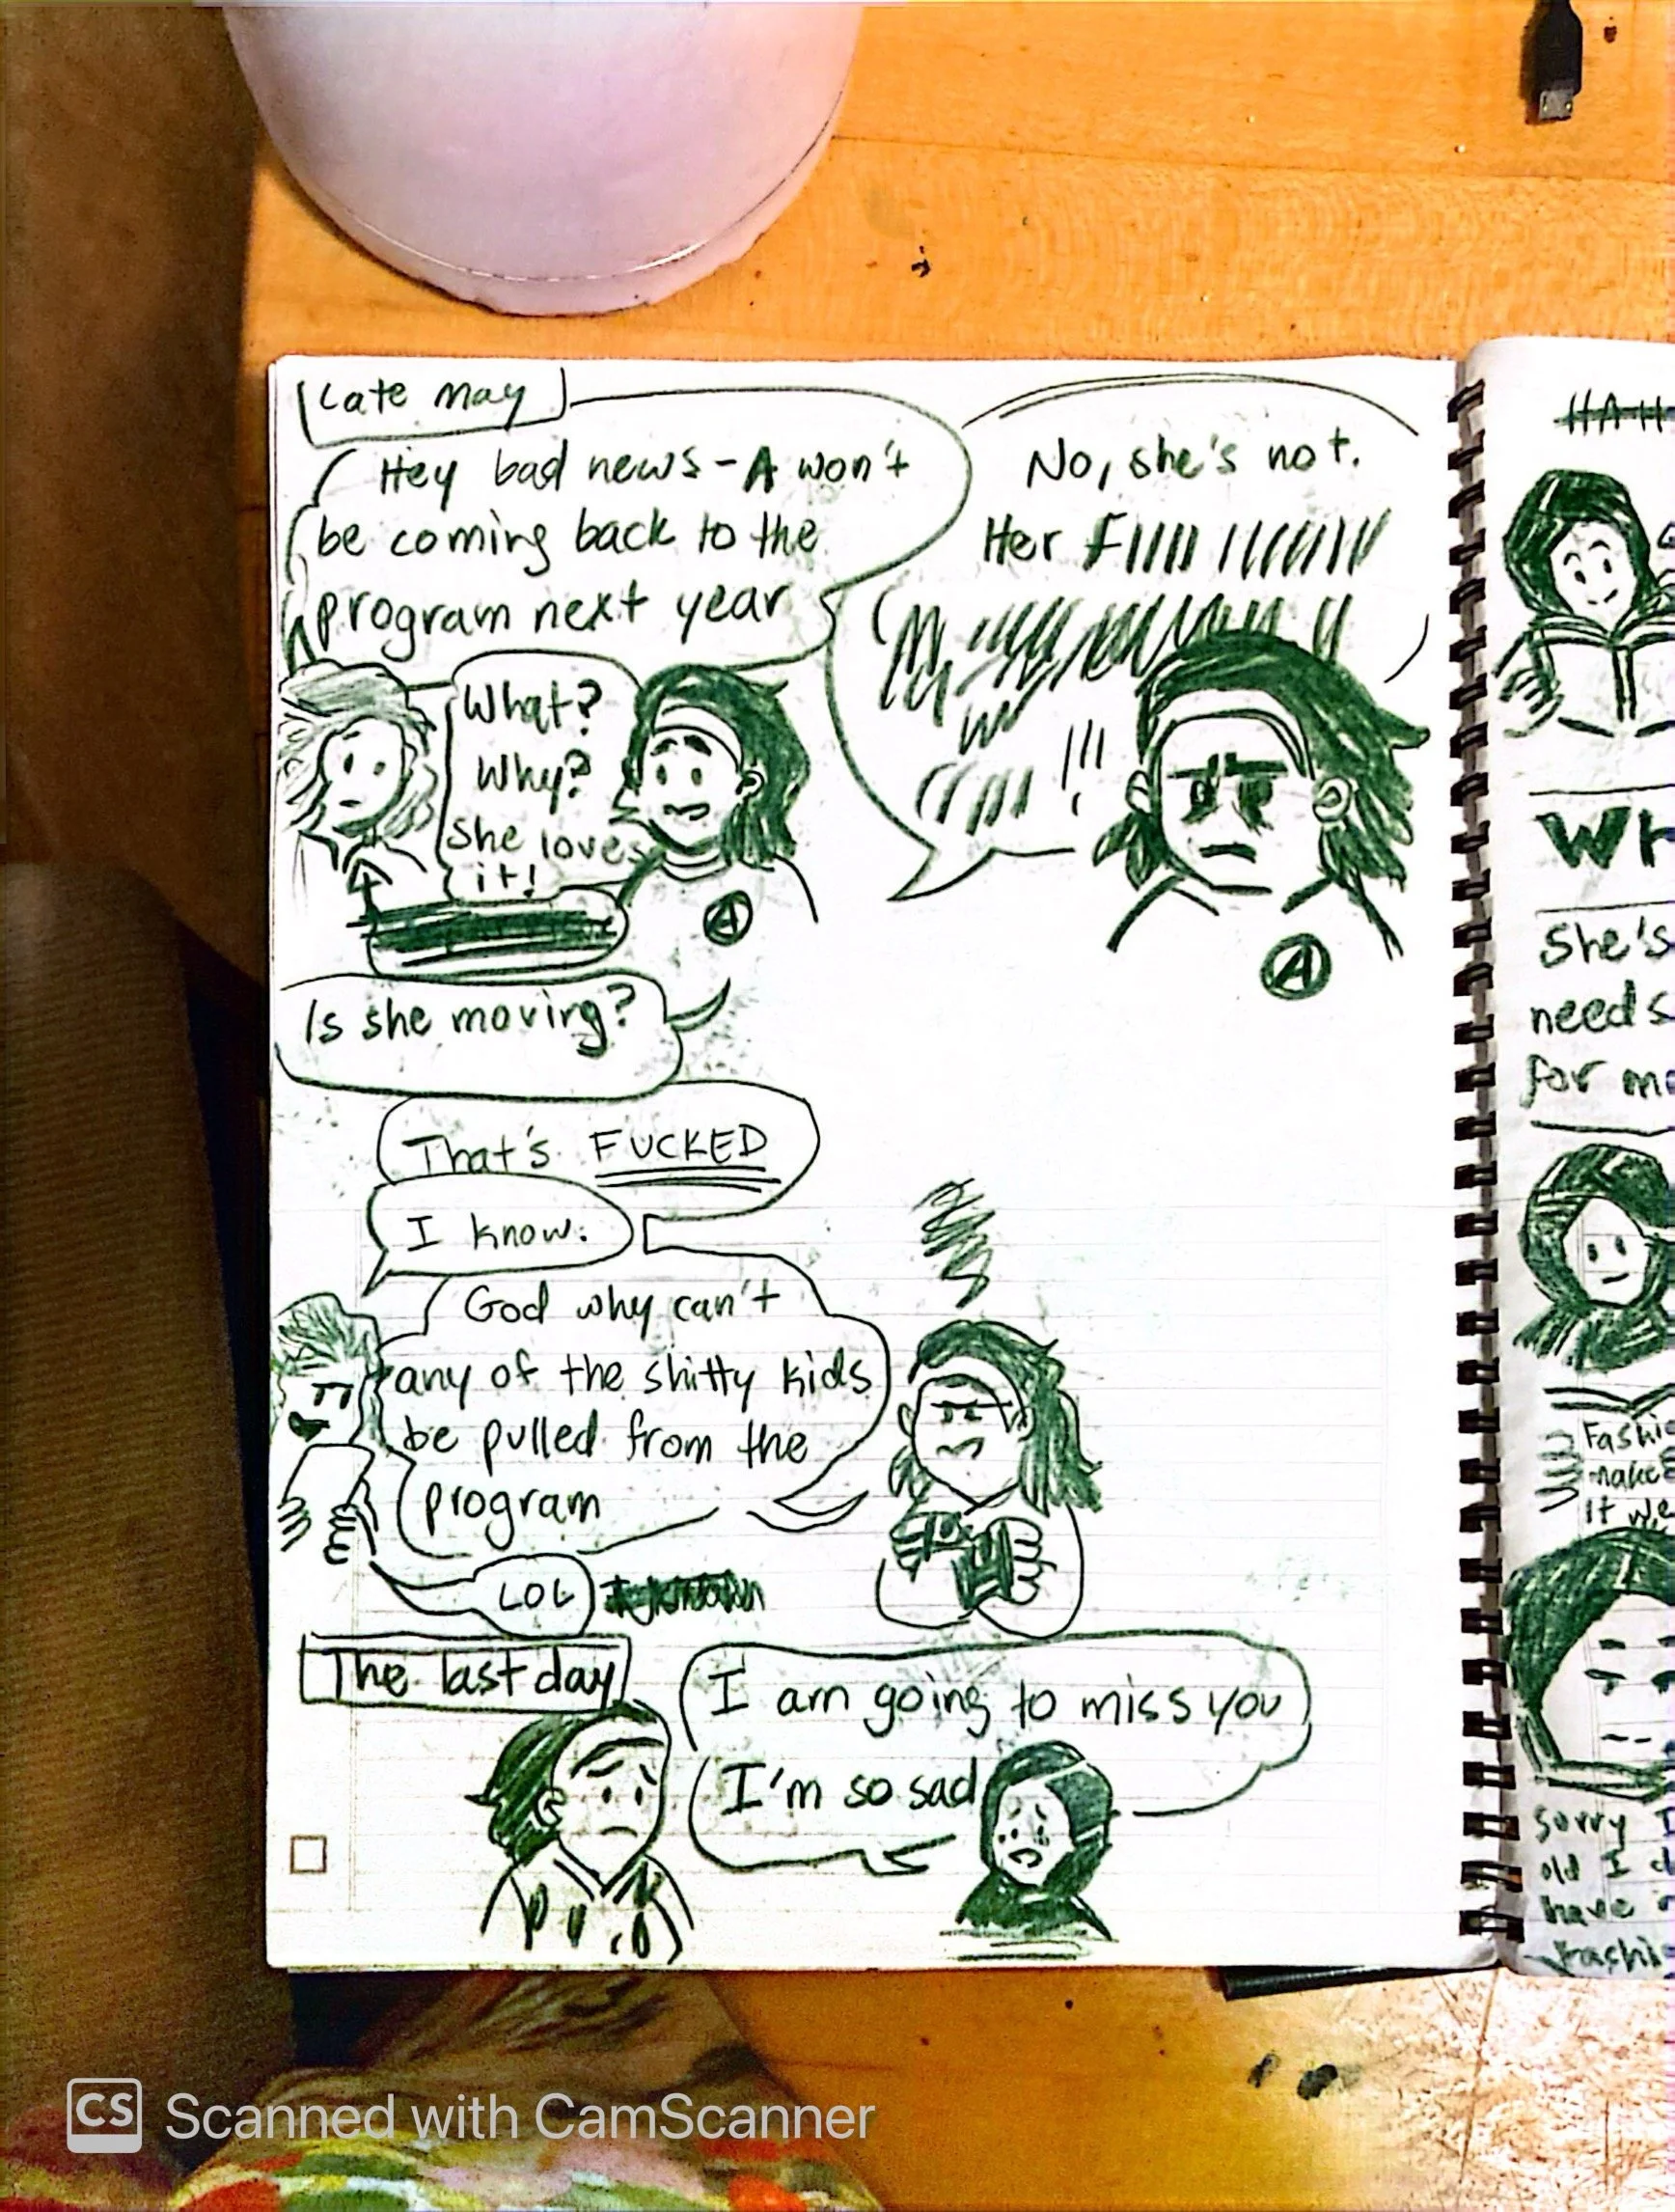 Late May
Hey bad news - A won't
be coming back to the
program next year
What?
Why?
She loves
it!
Is she moving?
No, she's not.
Her
!!!
A
A
That's FUCKED
I know.
God why can't
any of the shitty kids
be pulled from the
program
LOL
The last day
I am going to miss you
I'm so sad
HAH
WH
She's
need s
for mo
Fashio
make
it we
Sorry I
old I d
have
Fashi
CS Scanned with CamScanner